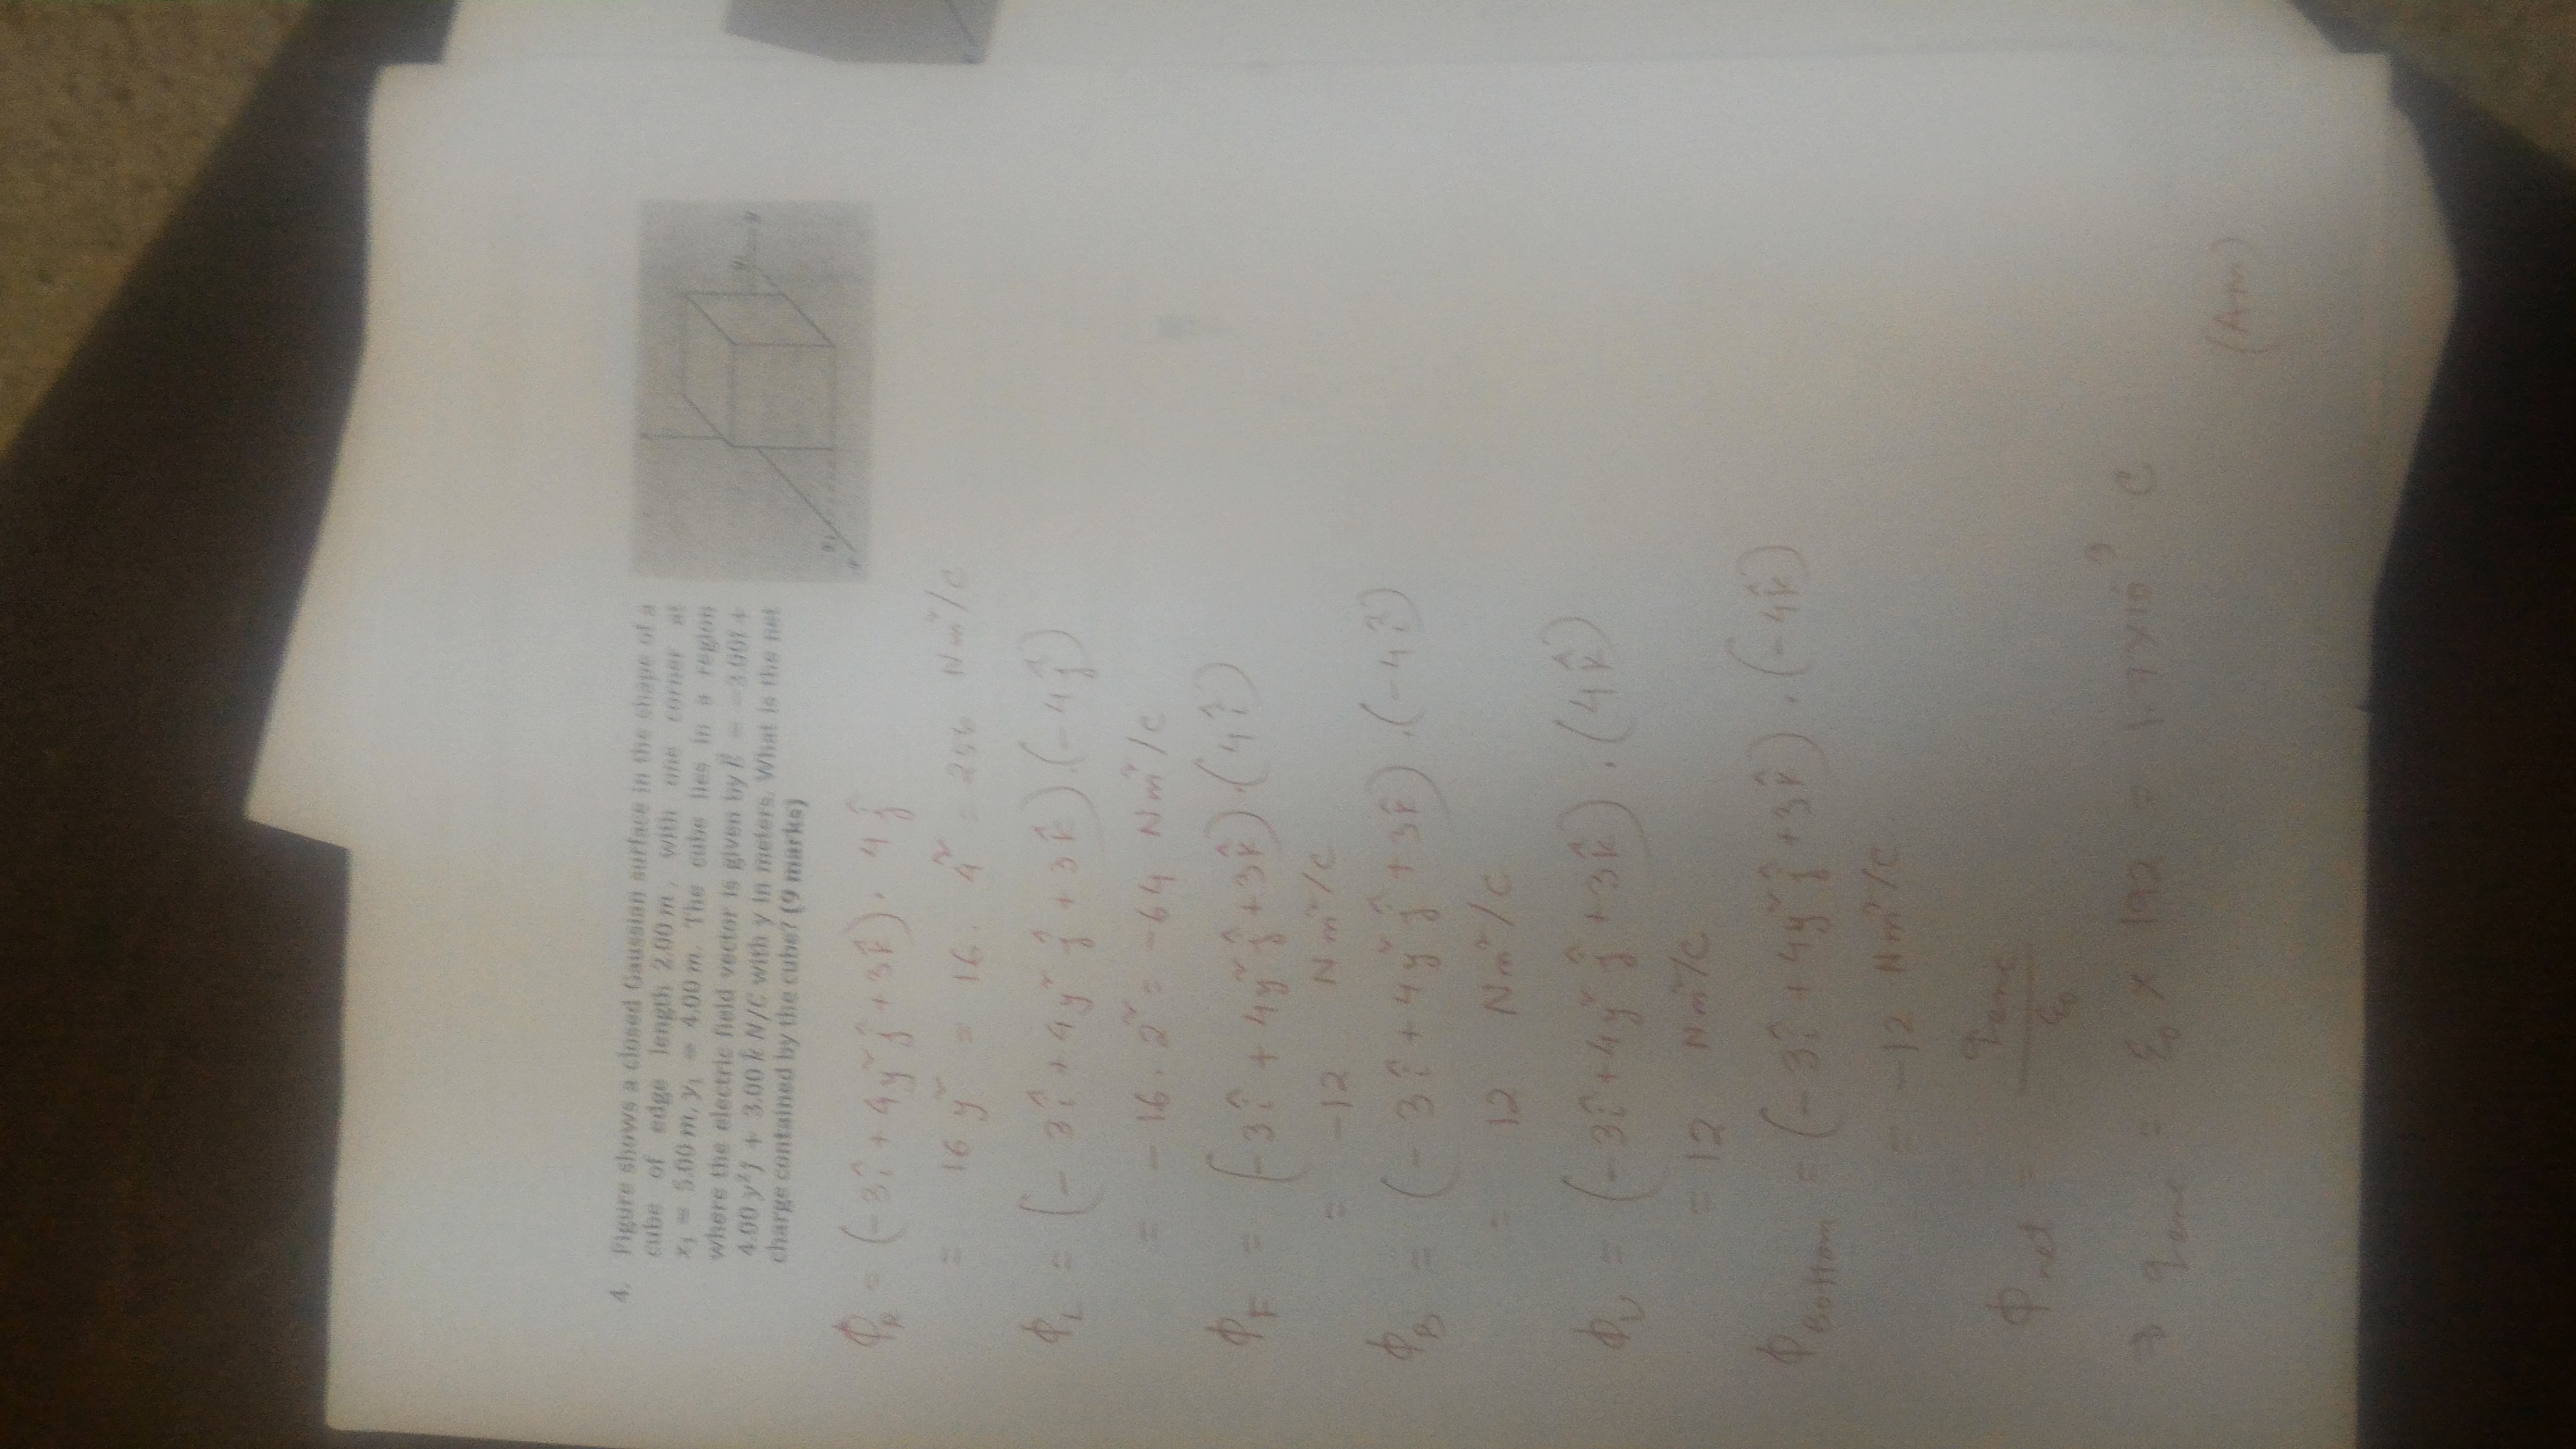 4. Figure shows a closed Gaussian surface in the shape of a
cube of edge length 2.00 m, with one corner at
x₁ = 5.00 m, y₁ = 4.00 m. The cube lies in a region
where the electric field vector is given by E⃗ = −3.00î +
4.00 y² ĵ + 3.00 k̂ N/C with y in meters. What is the net
charge contained by the cube? (9 marks)
ϕ_R = (-3î + 4y² ĵ + 3k̂) · 4ĵ
= 16 y² = 16 · 4² = 256 Nm²/C
ϕ_L = (-3î + 4y² ĵ + 3k̂) · (-4ĵ)
= -16 · 2² = -64 Nm²/C
ϕ_F = (-3î + 4y² ĵ + 3k̂) · (4î)
= -12 Nm²/C
ϕ_B = (-3î + 4y² ĵ + 3k̂) · (-4î)
= 12 Nm²/C
ϕ_U = (-3î + 4y² ĵ + 3k̂) · (4k̂)
= 12 Nm²/C
ϕ_Bottom = (-3î + 4y² ĵ + 3k̂) · (-4k̂)
= -12 Nm²/C
ϕ_net = q_enc / ε₀
⇒ q_enc = ε₀ × 192 = 1.7×10⁻⁹ C
(Ans)